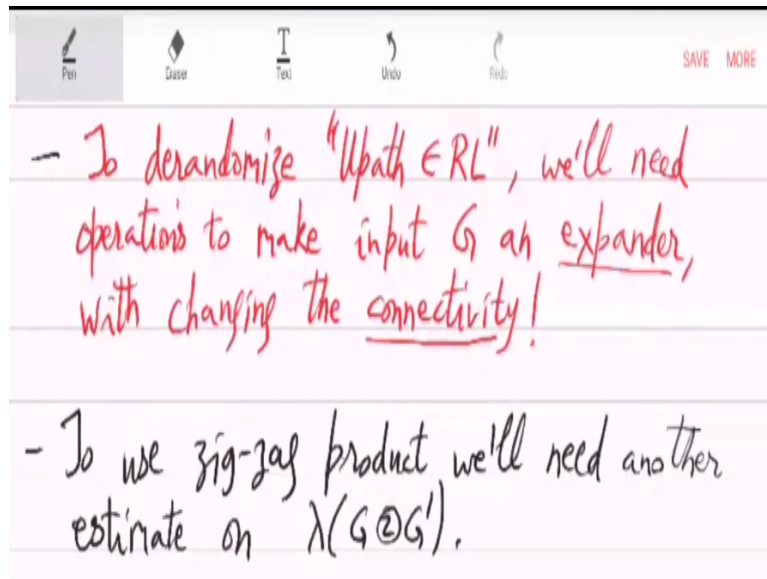 Pen Eraser Text Undo Redo SAVE MORE
- To derandomize "Upath ∈ RL", we'll need
operations to make input G an expander,
with changing the connectivity!
- To use zig-zag product, we'll need another
estimate on λ(GⓩG').